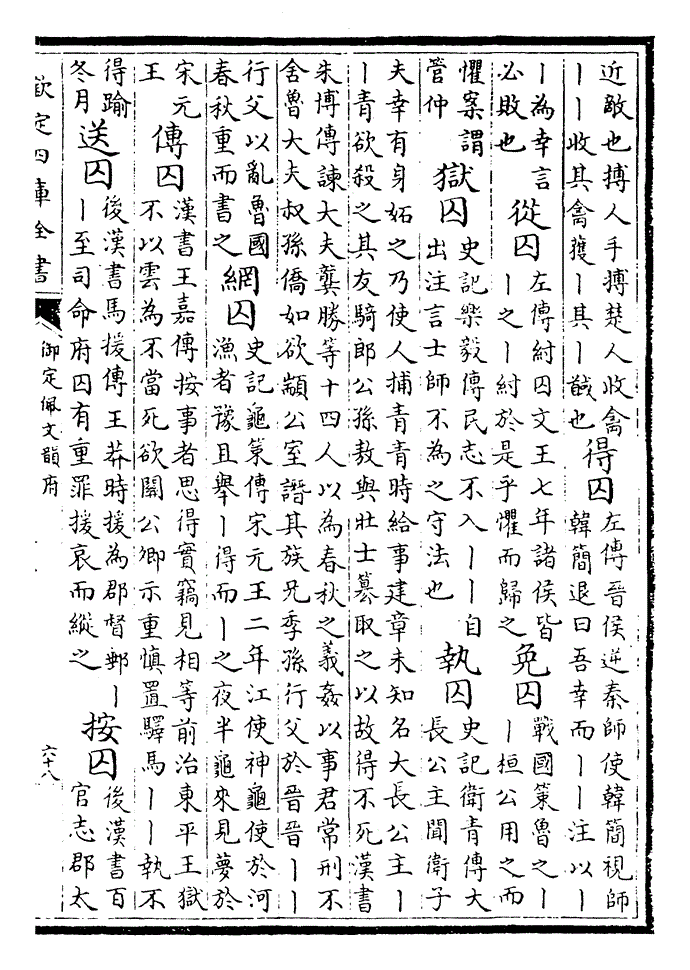 近敵也搏人手搏楚人收禽丨丨收其禽獲丨其丨馘也得囚左傳晉侯逆秦師使韓簡視師韓簡退曰吾幸而丨丨注以丨
丨為幸言必敗也從囚左傳紂囚文王七年諸侯皆丨之丨紂於是乎懼而歸之免囚戰國策魯之丨丨桓公用之而
懼案謂管仲獄囚史記樂毅傳民志不入丨丨自出注言士師不為之守法也執囚史記衛青傳大長公主聞衛子
夫幸有身妬之乃使人捕青青時給事建章未知名大長公主丨丨青欲殺之其友騎郎公孫敖與壯士篡取之以故得不死漢書
朱博傳諫大夫龔勝等十四人以為春秋之義姦以事君常刑不舍魯大夫叔孫僑如欲顓公室譖其族兄季孫行父於晉晉丨丨
行父以亂魯國春秋重而書之網囚史記龜策傳宋元王二年江使神龜使於河漁者豫且舉丨得而丨之夜半龜來見夢於
宋元王傳囚漢書王嘉傳按事者思得實竊見相等前治東平王獄不以雲為不當死欲關公卿示重慎置驛馬丨丨執不
得踰冬月送囚後漢書馬援傳王莽時援為郡督郵丨丨至司命府囚有重罪援哀而縱之按囚後漢書百官志郡太
欽定四庫全書
御定佩文韻府
六十八